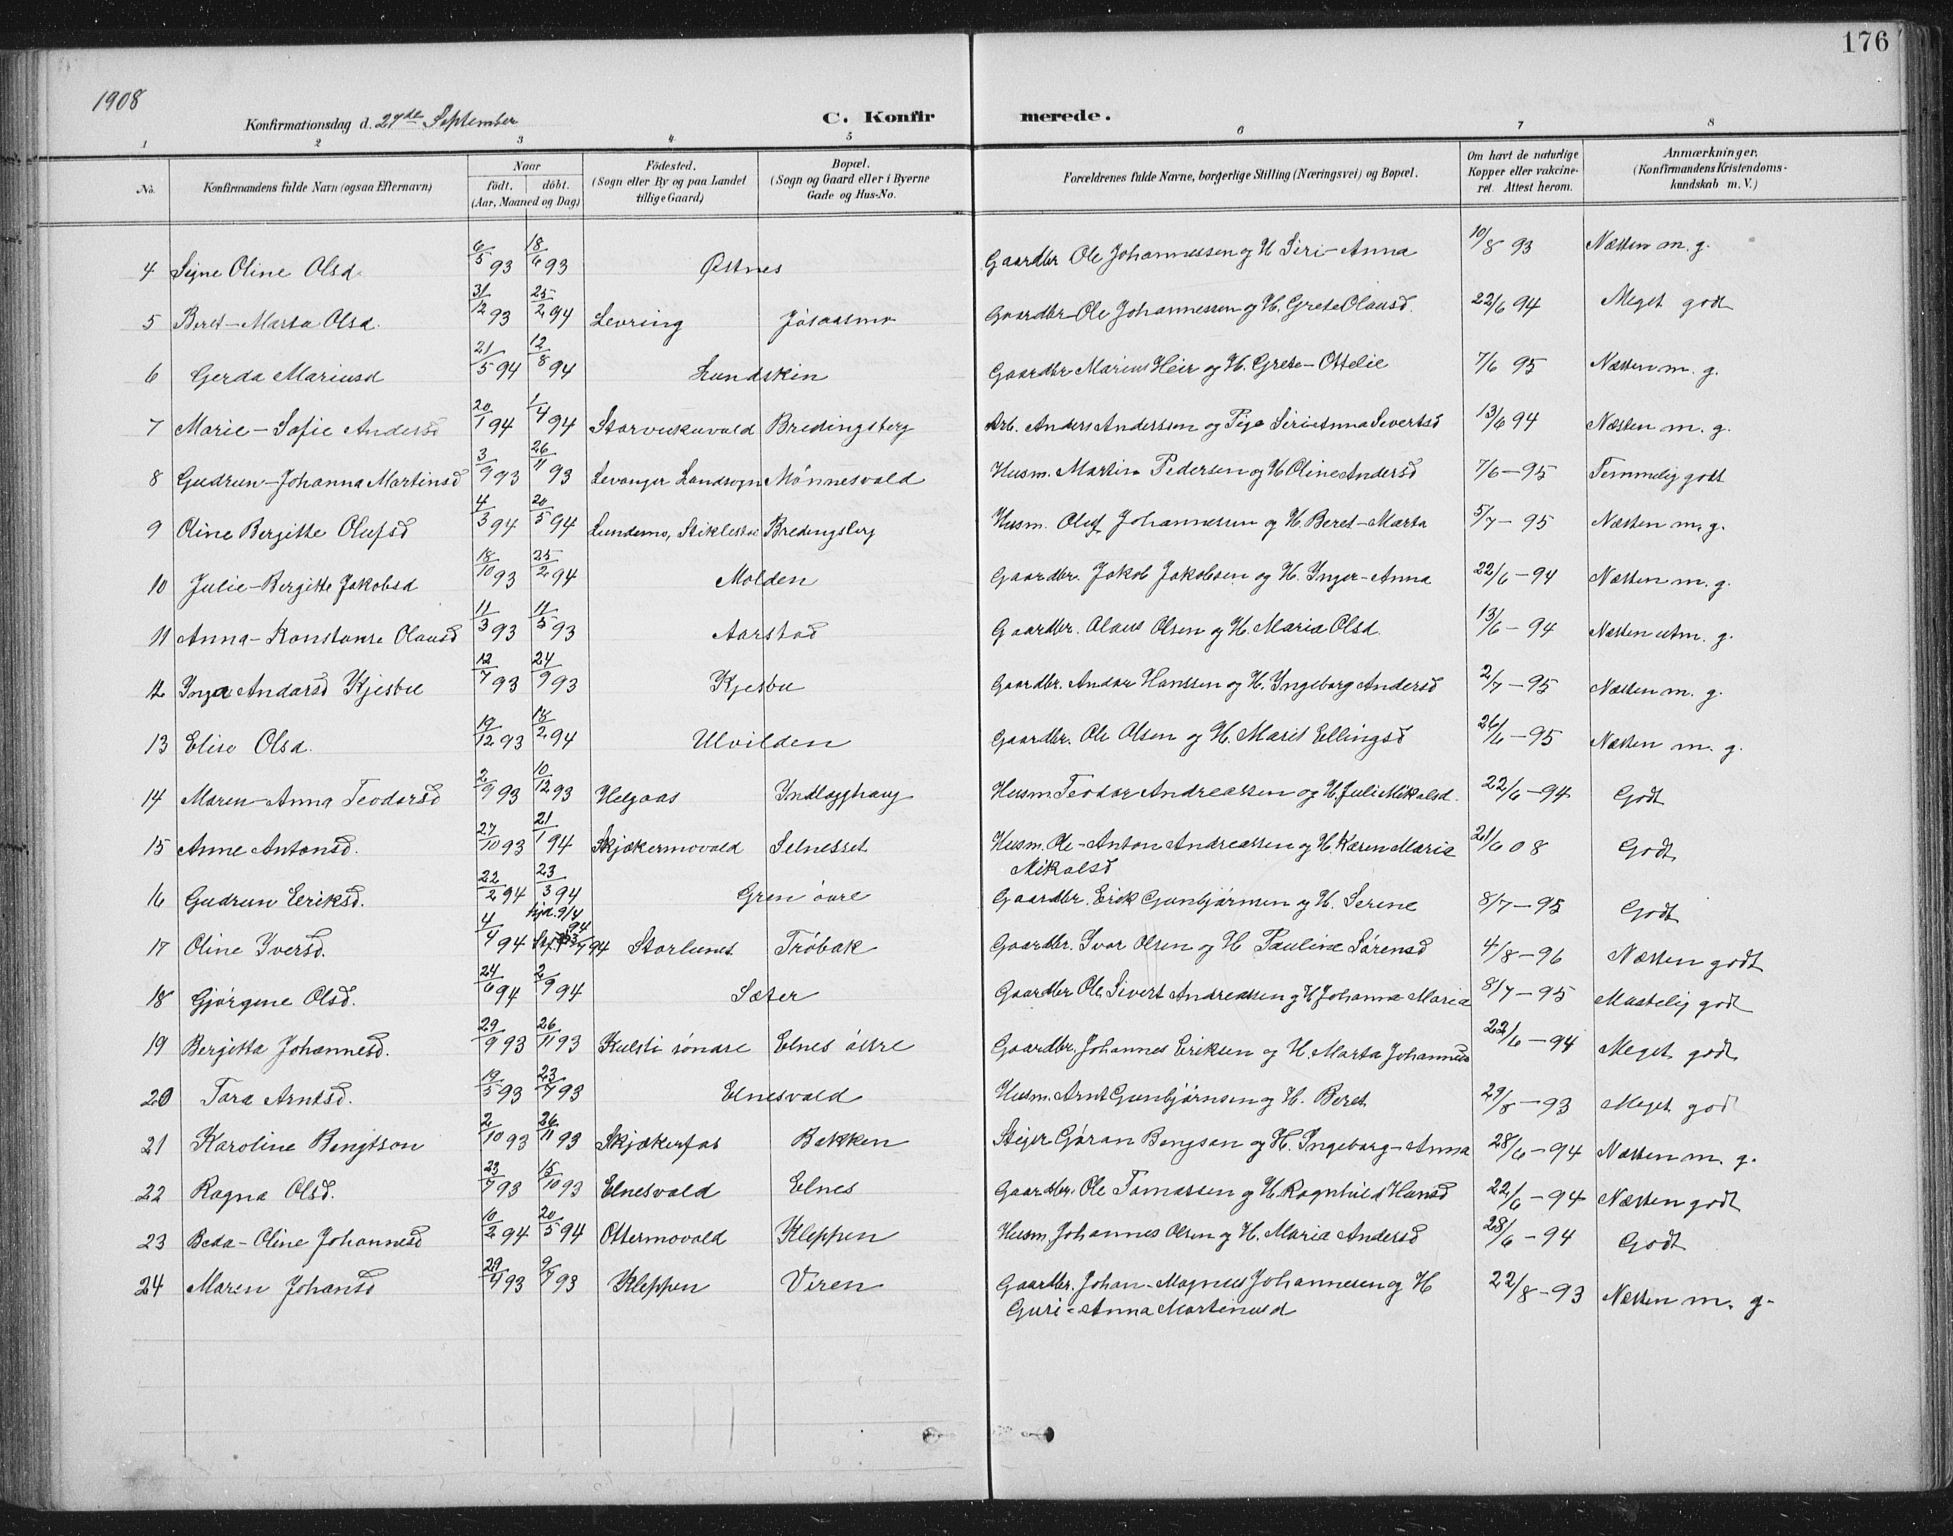 176
1908
Konfirmationsdag d. 27de September C. Konfirmerede.
1 2 3 4 5 6 7 8
No. Konfirmandens fulde Navn (ogsaa Efternavn) Naar født. døbt. (Aar, Maaned og Dag) Födested. (Sogn eller By og paa Landet tillige Gaard) Bopæl. (Sogn og Gaard eller i Byerne Gade og Hus-No. Forældrenes fulde Navne, borgerlige Stilling (Næringsvei) og Bopæl. Om havt de naturlige Kopper eller vakcineret. Attest herom. Anmærkninger. (Konfirmandens Kristendomskundskab m. V.)
4 Signe Oline Olsd. 6/5 93 18/6 93 Østnes Gaardbr Ole Johannessen og H Siri-Anna 10/8 93 Næsten m. g.
5 Beret-Marta Olsd. 31/12 93 25/2 94 Levring Jøsaasmo Gaardbr Ole Johannessen og H. Grete Olausd. 22/6 94 Meget godt
6 Gerda Mariusd 21/5 94 12/8 94 Lundskin Gaardbr Marius Heir og H. Grete-Ottelie 7/6 95 Næsten m. g.
7 Marie-Sofie Andersd 20/1 94 1/4 94 Storvukuvald Bredingsberg Arb. Anders Anderssen og Pige Siri-Anna Sivertsd 13/6 94 Næsten m. g.
8 Gudrun-Johanna Martinsd 3/9 93 26/11 93 Levanger Landsogn Mønnesvald Husm. Martin Pedersen og H Oline Andersd 7/6-95 Temmelig godt
9 Oline Bergitte Olufsd 4/3 94 20/5 94 Lundemo, Stiklestad Bredingsberg Husm. Oluf Johannesen og H. Beret-Marta 5/7-95 Næsten m. g.
10 Julie-Bergitte Jakobsd 18/10 93 25/2 94 Molden Gaardbr. Jakob Jakobsen og H. Inger-Anna 22/6-94 Næsten m. g.
11 Anna-Konstanse Olausd 11/3 93 11/5 93 Aarstad Gaardbr. Olaus Olsen og H. Maria Olsd. 13/6-94 Næsten utm. g.
12 Inga Andorsd Kjesbu 12/7 93 24/9 93 Kjesbu Gaardbr. Andor Hanssen og H. Ingeborg Andersd 2/7-95 Næsten m. g.
13 Elise Olsd. 19/12 93 18/2 94 Ulvilden Gaardbr. Ole Olsen og H. Marit Ellingsd 26/6-95 Næsten m. g.
14 Maren-Anna Teodorsd 2/9 93 10/12 93 Helgaas Husm Teodor Andreassen og H. Juli Mikalsd. 22/6-94 Godt
15 Anne Antonsd. 27/10 93 21/1 94 Skjækermovald Selnesset Husm. Ole-Anton Andreassen og H. Karen Maria 21/6 08 Godt
Mikalsd
16 Gudrun Eriksd. 22/2 94 23/3 94 Gren övre Gaardbr. Erik Gunbjørnsen og H. Serine 8/7-95 Godt
17 Oline Iversd. 4/4 94 hjd. 9/4 94 Storlunet Tröbak Gaardbr. Ivar Olsen og H Pauline Sørensd 4/8-96 Næsten godt
18 Gjørgine Olsd. 24/6 94 2/9 94 Sæter Gaardbr Ole Sivert Andreassen og H Johanna Maria 8/7-95 Maatelig godt
19 Bergitta Johannesd. 29/9 93 26/11 93 Kulsti söndre Elnes östre Gaardbr. Johannes Eriksen og H. Marta Johannesd 22/6-94 Meget godt
20 Tora Arntsd. 19/5 93 23/7 93 Elnesvald Husm. Arnt Gunbjørnsen og H. Beret 29/8-93 Meget godt
21 Karoline Bengtson 2/10 93 26/11 93 Skjækerfos Bakken Stiger Gøran Bengsen og H. Ingeborg-Anna 28/6-94 Næsten m. g.
22 Ragna Olsd. 23/7 93 15/10 93 Elnesvald Elnes Gaardbr. Ole Tomassen og H. Ragnhild Hansd 22/6-94 Næsten godt
23 Beda-Oline Johannesd 10/2 94 20/5 94 Ottermovald Kleppen Husm. Johannes Olsen og H. Maria Andersd 28/6-94 Godt
24 Maren Johansd 29/4 93 9/7 93 Kleppen Viren Gaardbr. Johan-Magnus Johannesen og H 22/8-93 Næsten m. g.
Guri-Anna Martinusd